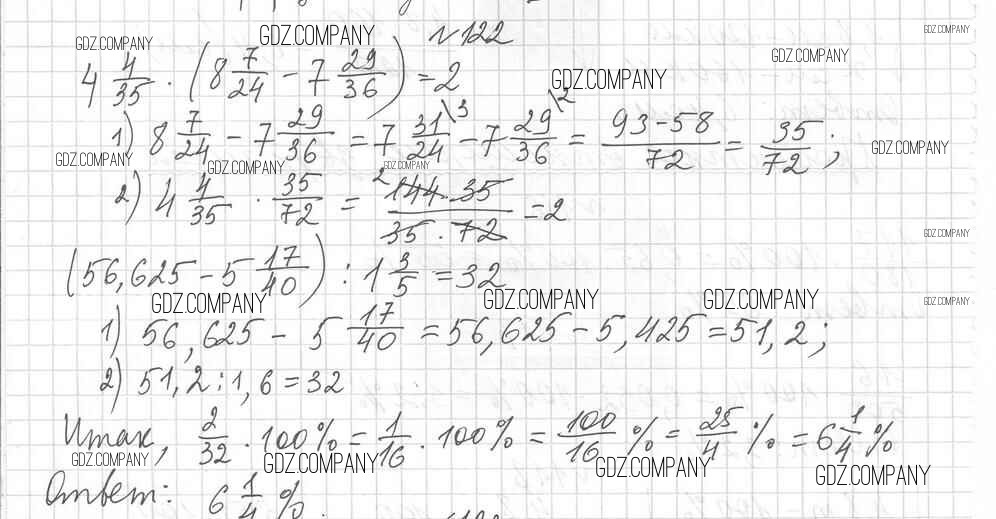 GDZ.COMPANY GDZ.COMPANY №122 GDZ.COMPANY
4 4/35 · (8 7/24 − 7 29/36) = 2 GDZ.COMPANY GDZ.COMPANY
1) 8 7/24 − 7 29/36 = 7 31/24 \3 − 7 29/36 \2 = (93−58)/72 = 35/72;
GDZ.COMPANY GDZ.COMPANY GDZ.COMPANY GDZ.COMPANY
2) 4 4/35 · 35/72 = 2 (144·35)/(35·72) = 2
GDZ.COMPANY
(56,625 − 5 17/40) : 1 3/5 = 32
GDZ.COMPANY GDZ.COMPANY GDZ.COMPANY GDZ.COMPANY
1) 56,625 − 5 17/40 = 56,625 − 5,425 = 51,2;
2) 51,2 : 1,6 = 32
Итак, 2/32 · 100% = 1/16 · 100% = 100/16 % = 25/4 % = 6 1/4 %
GDZ.COMPANY GDZ.COMPANY GDZ.COMPANY GDZ.COMPANY
Ответ: 6 1/4 %.